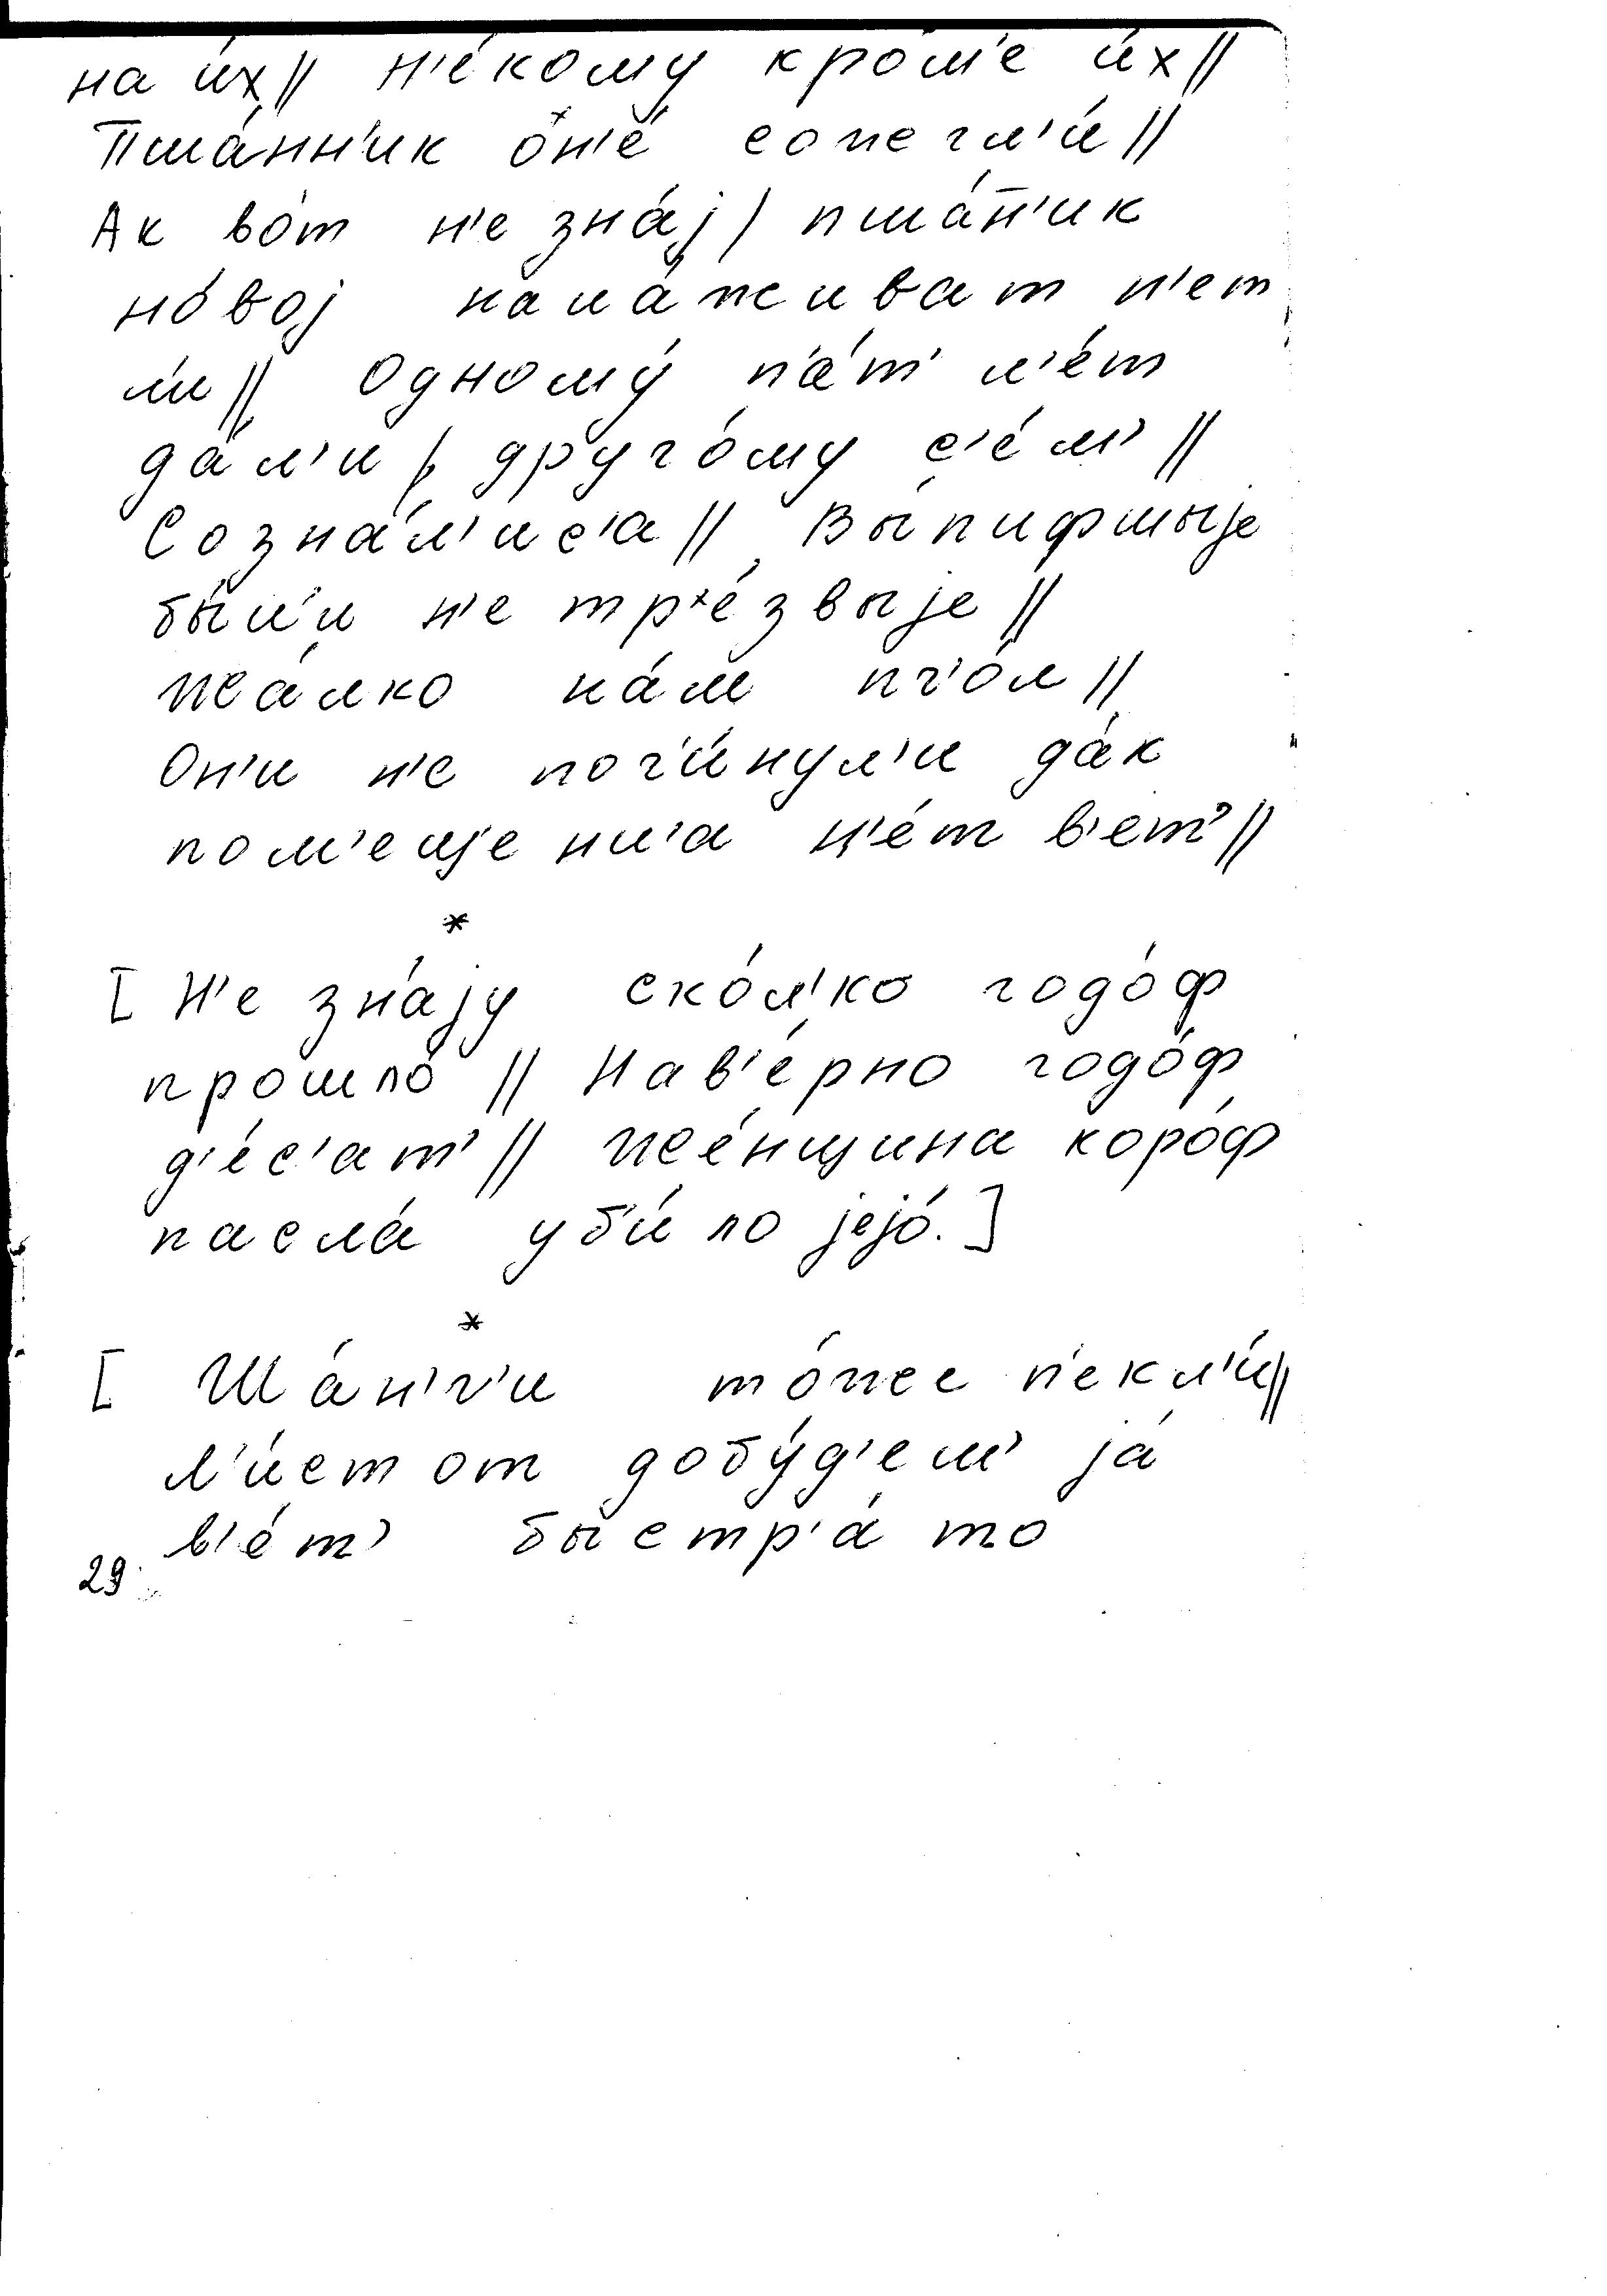 на и́х // н'е́кому кро́м'е и́х //
Пша́нн'ик о̂н'е́ сожгл'и́ //
Ак во́т н'е зна́j / пша́н̄'ик
но́воj нала́живат н'ет
л'и // Одному́ п'а́т' л'е́т
да́л'и / друго́му с'е́м' //
Созна́л'ис'а // Вы́пифшыjе
бы́л'и н'е тр'е́звыjе //
Жа́лко на́м пч'о́л //
Он'и н'е поги́нул'и да́к
пом'ещjенн'а н'е́т в'ет' //
*
[ Н'е зна́jу ско́л'ко годо́ф
прошло́ // Нав'е́рно годо́ф
д'е́с'ат' // Же́нщина коро́ф
пасла́ уби́ло jejó. ]
*
[ Ша́н'г'и то́же п'екл'и́ //
л'и́стот добу́д'ем' já
в'е́т' быстр'а́ то
29